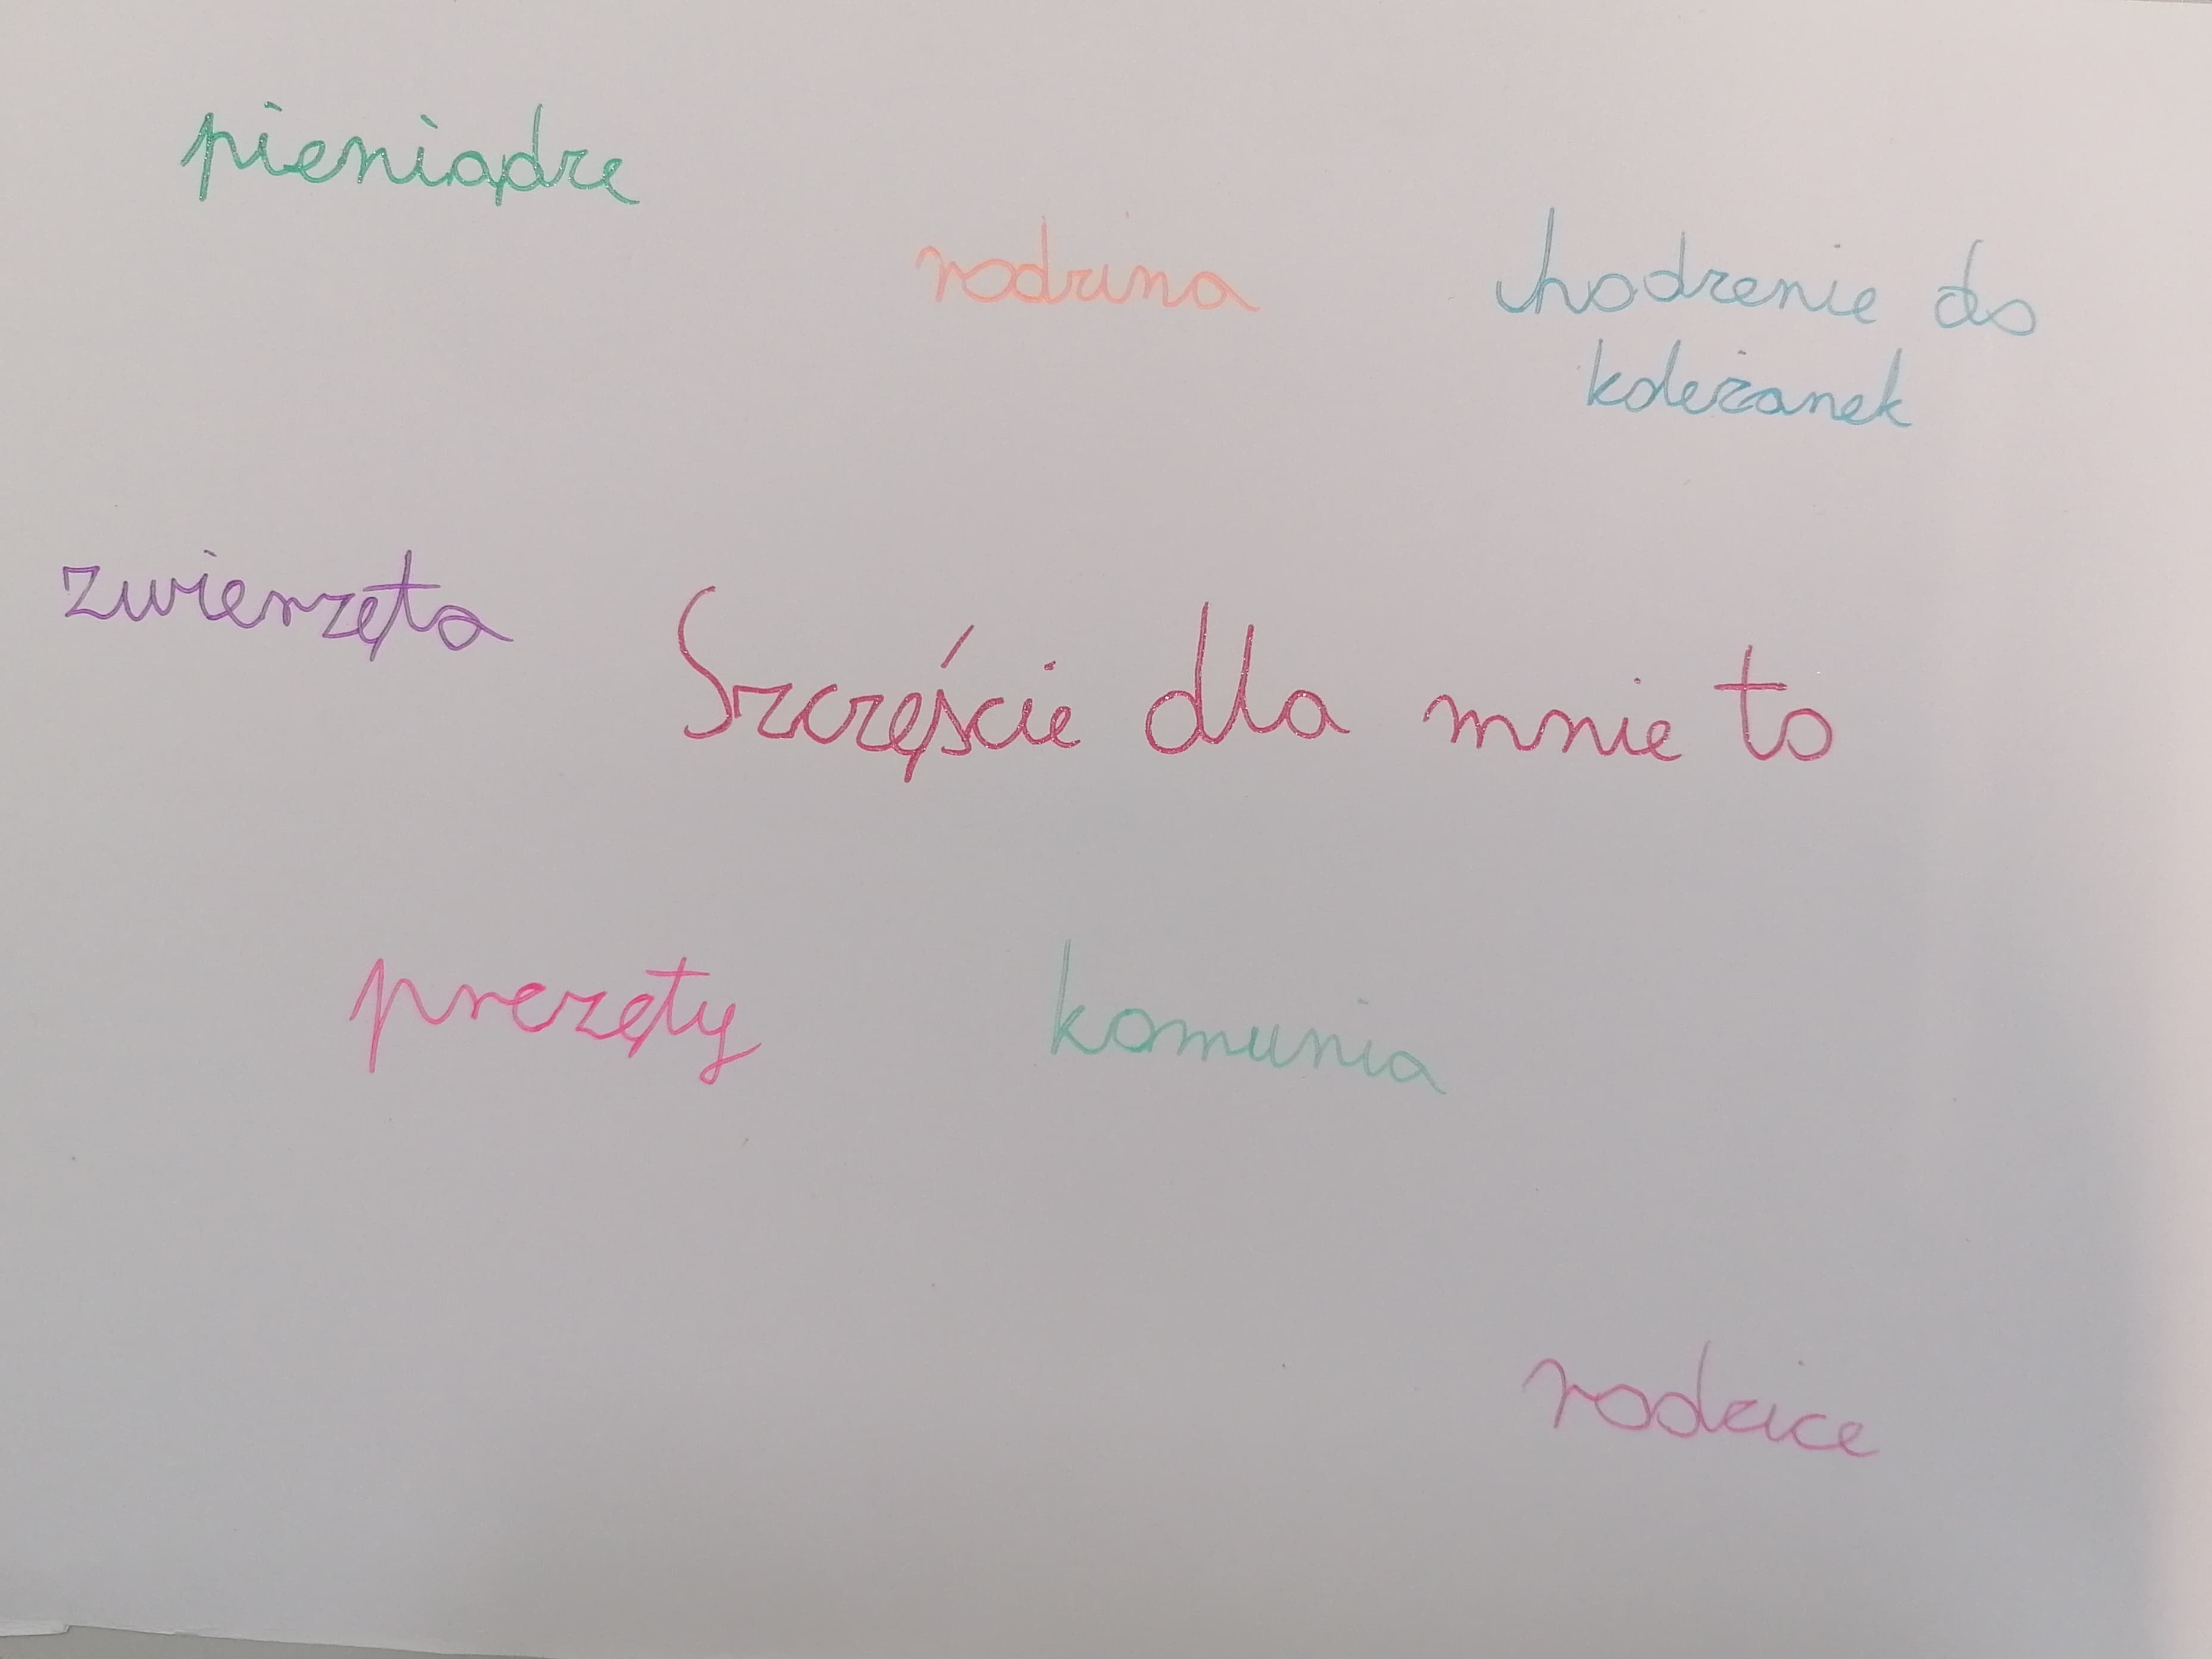 pieniądze
rodzina
chodzenie do
koleżanek
zwierzęta
Szczęście dla mnie to
prezęty
komunia
rodzice